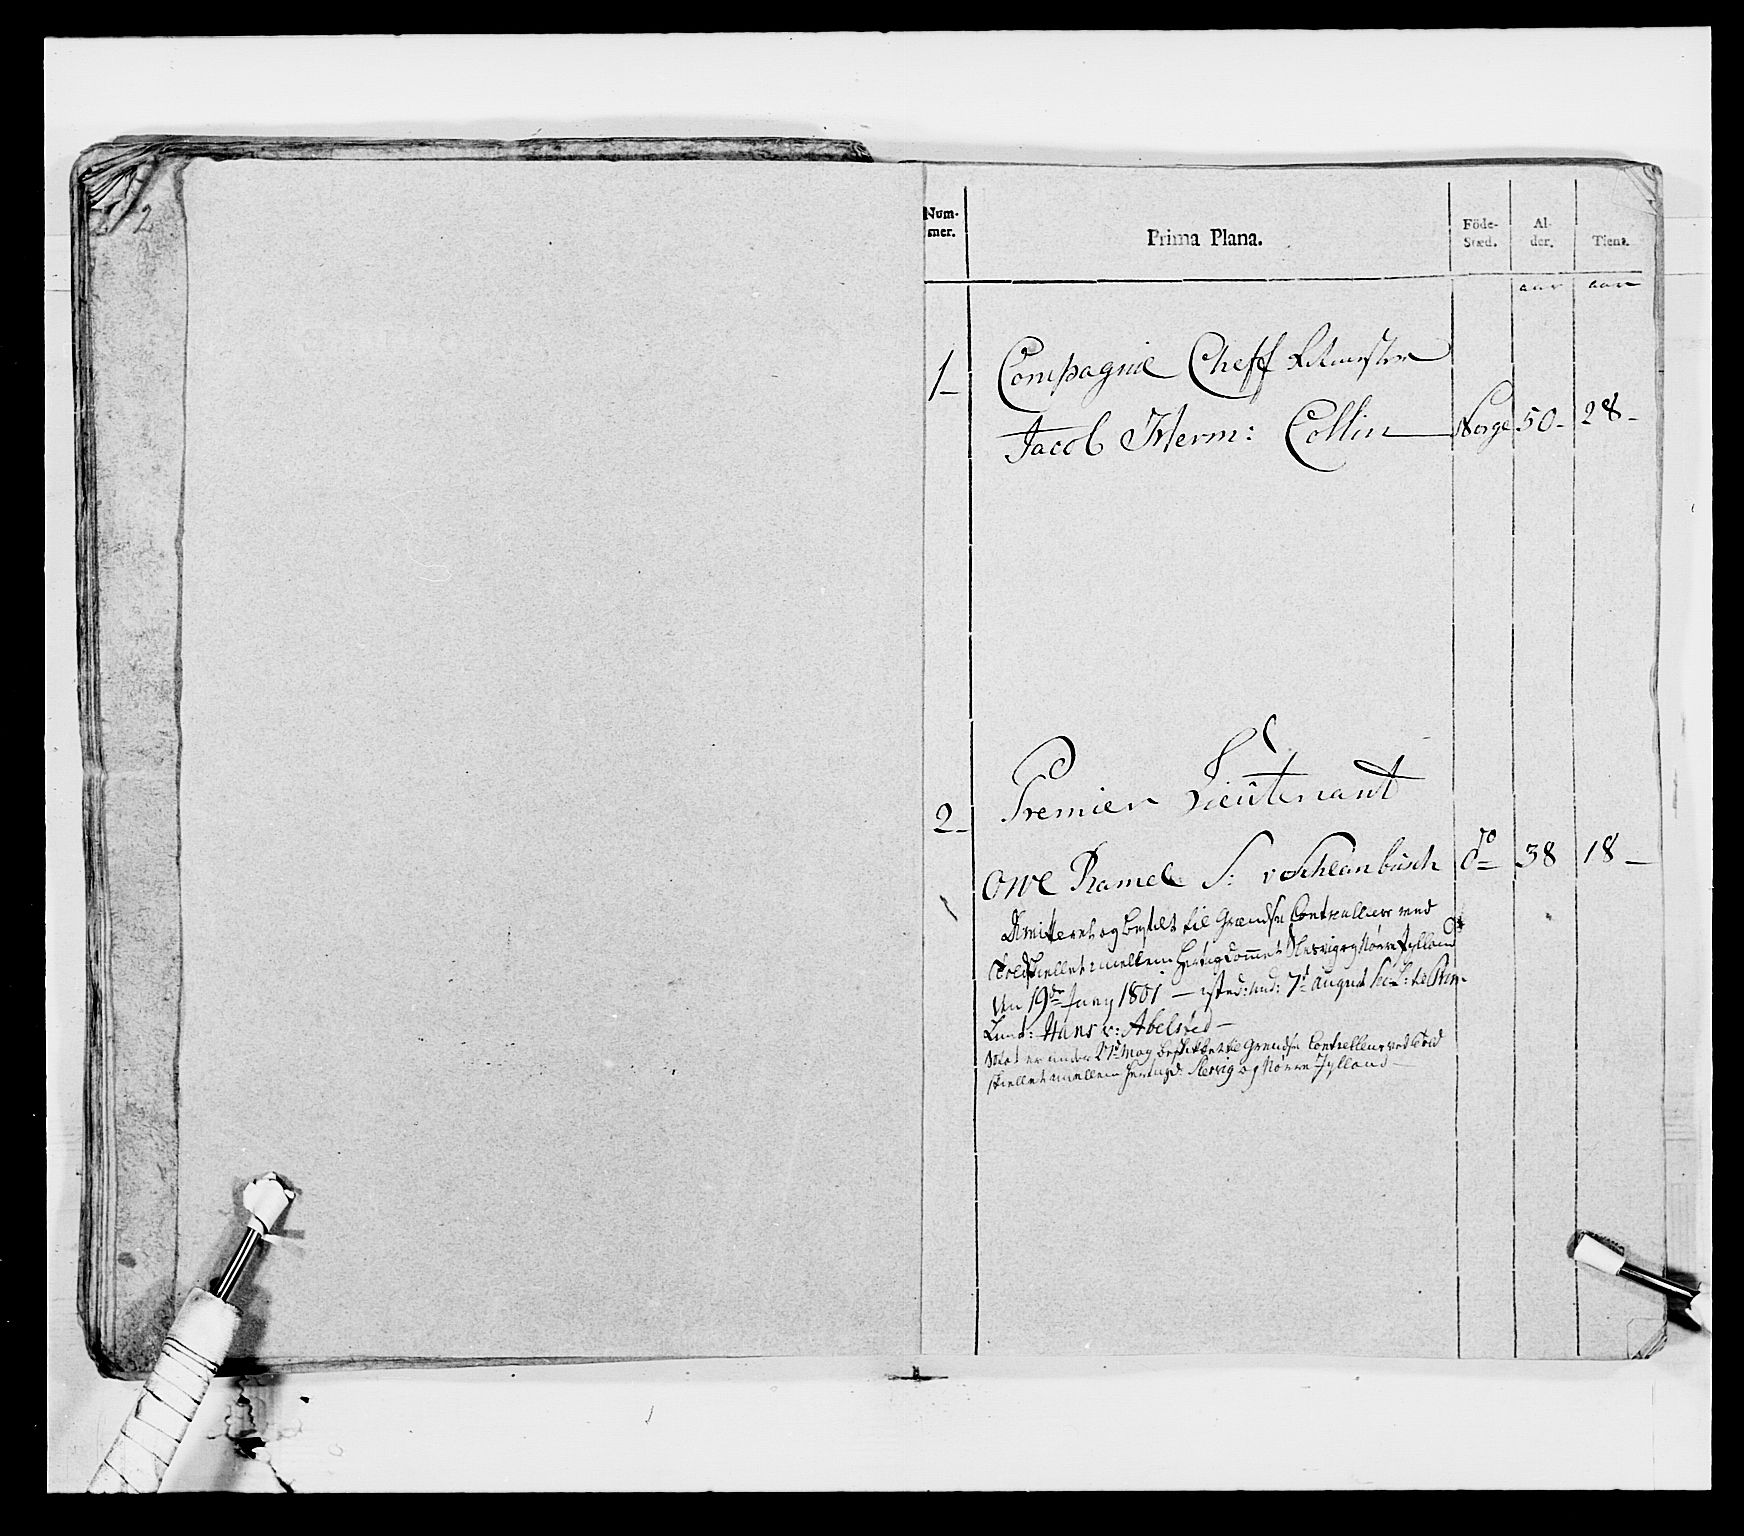 2
Num-
mer.
Prima Plana.
Föde-
Stæd.
Al-
der.
Tient.
aar aar
1- Compagnie Cheff Ritmester
Jacob Herm: Collin Norge 50- 28-
2- Premier Lieutenant
Owe Ramel S: v Schlanbusch do 38 18-
Dimitteret og bestilt til Grændse Controlleur ved
Toldskiellet mellem Hertugdommet Slesvig og Nörre Jylland
den 19de Juny 1801 - isted: und: 7de August
Lieut: Hans v: Abelsted -
Not er under 21de May beskikket til Grendse Controlleur ved Told
skiellet imellem Hertugd: Slesvig og Nörre Jylland -